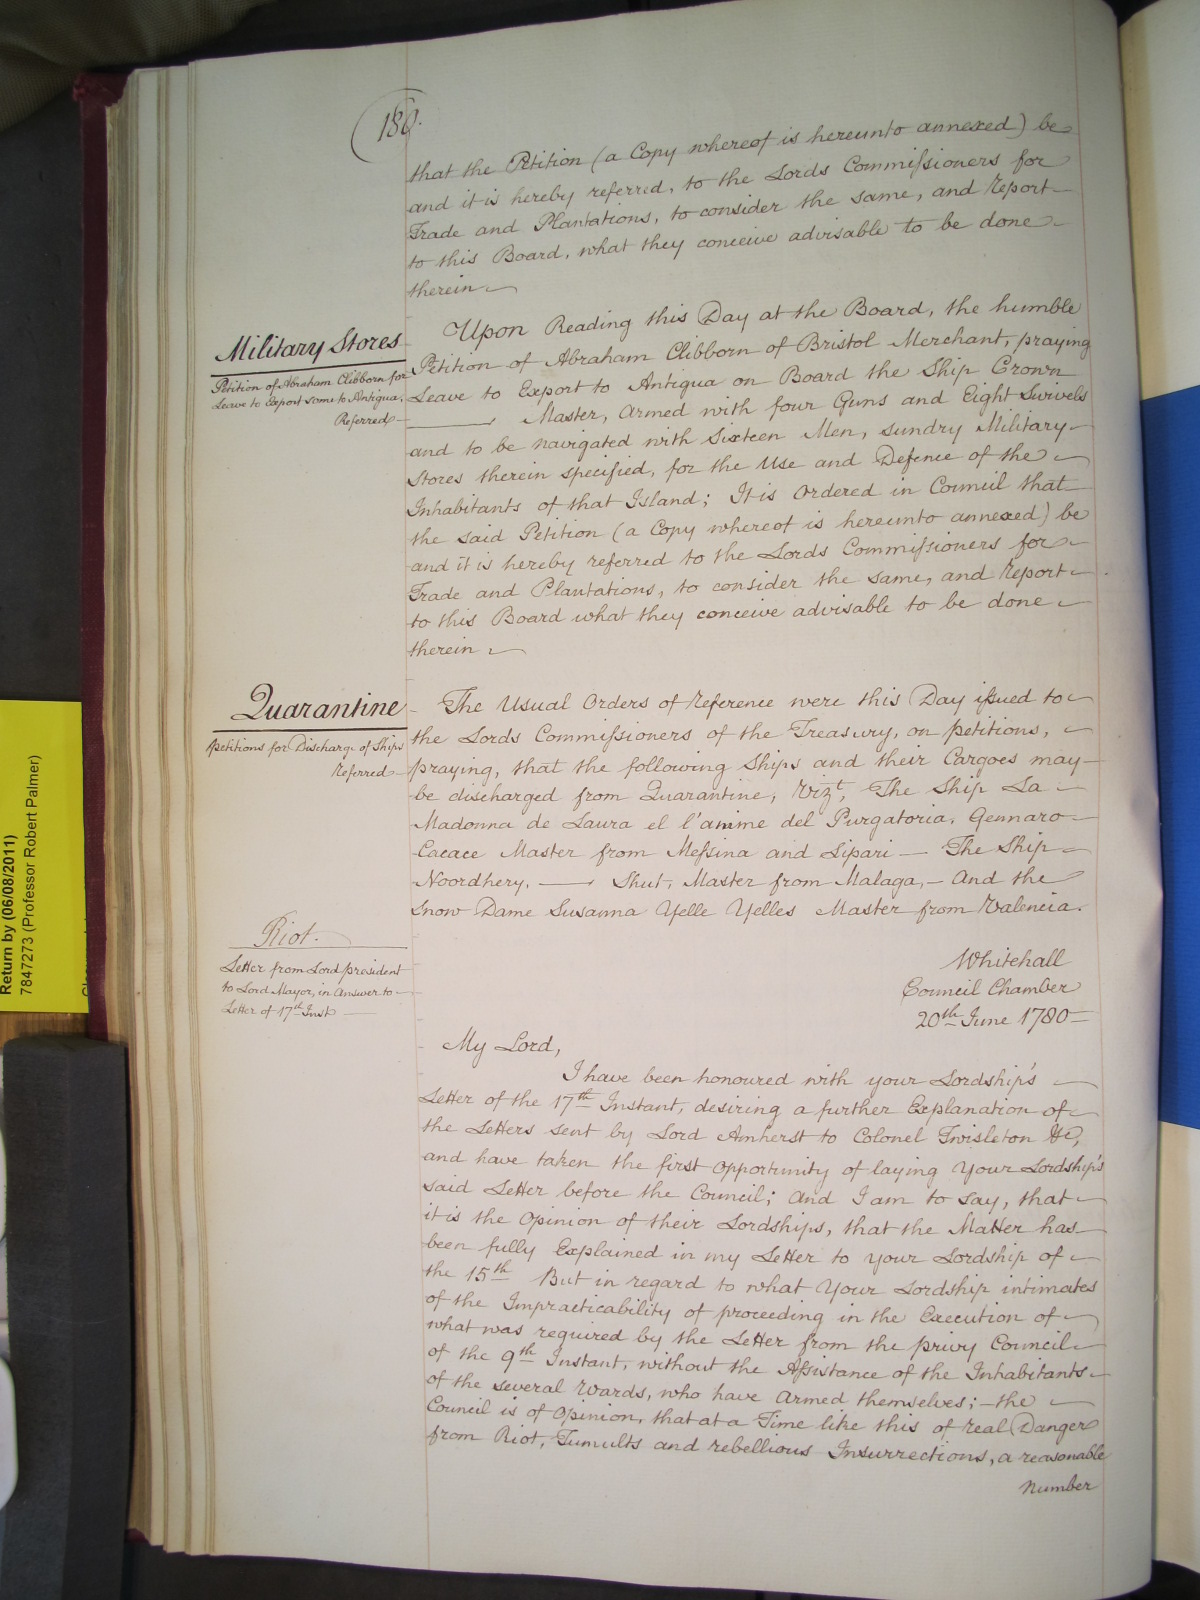 186.
that the Petition (a Copy whereof is hereunto annexed) be
and it is hereby referred, to the Lords Commissioners for
Trade and Plantations, to consider the same, and Report
to this Board, what they conceive advisable to be done
therein
Military Stores
Petition of Abraham Clibborn for
Leave to Export some to Antigua,
Referred
Upon Reading this Day at the Board, the humble
Petition of Abraham Clibborn of Bristol Merchant, praying
Leave to Export to Antigua on Board the Ship Crown
——— Master, Armed with four Guns and Eight Swivels
and to be navigated with Sixteen Men, sundry Military
Stores therein specified, for the Use and Defence of the
Inhabitants of that Island; It is Ordered in Council that
the said Petition (a Copy whereof is hereunto annexed) be
and it is hereby referred to the Lords Commissioners for
Trade and Plantations, to consider the same, and Report
to this Board what they conceive advisable to be done
therein
Quarantine
Petitions for Discharge of Ships
Referred
The Usual Orders of Reference were this Day issued to
the Lords Commissioners of the Treasury, on petitions,
praying, that the following Ships and their Cargoes may
be discharged from Quarantine, Vizt. The Ship La
Madonna de Laura el l'anime del Purgatoria, Gennaro
Cacace Master from Messina and Lipari — The Ship
Noordhery, —— Shut, Master from Malaga, — And the
Snow Dame Susanna Yelle Yelles Master from Valencia.
Riot.
Letter from Lord president
to Lord Mayor, in Answer to
Letter of 17th Inst
Whitehall
Council Chamber
20th June 1780
My Lord,
I have been honoured with your Lordship's
Letter of the 17th Instant, desiring a further Explanation of
the Letters sent by Lord Amherst to Colonel Twisleton &c,
and have taken the first opportunity of laying Your Lordship's
said Letter before the Council; And I am to say, that
it is the Opinion of their Lordships, that the Matter has
been fully Explained in my Letter to your Lordship of
the 15th But in regard to what Your Lordship intimates
of the Impracticability of proceeding in the Execution of
what was required by the Letter from the privy Council
of the 9th Instant, without the Assistance of the Inhabitants
of the several Wards, who have Armed themselves; — the
Council is of Opinion, that at a Time like this of real Danger
from Riot, Tumults and rebellious Insurrections, a reasonable
number
Return by (06/08/2011)
7847273 (Professor Robert Palmer)